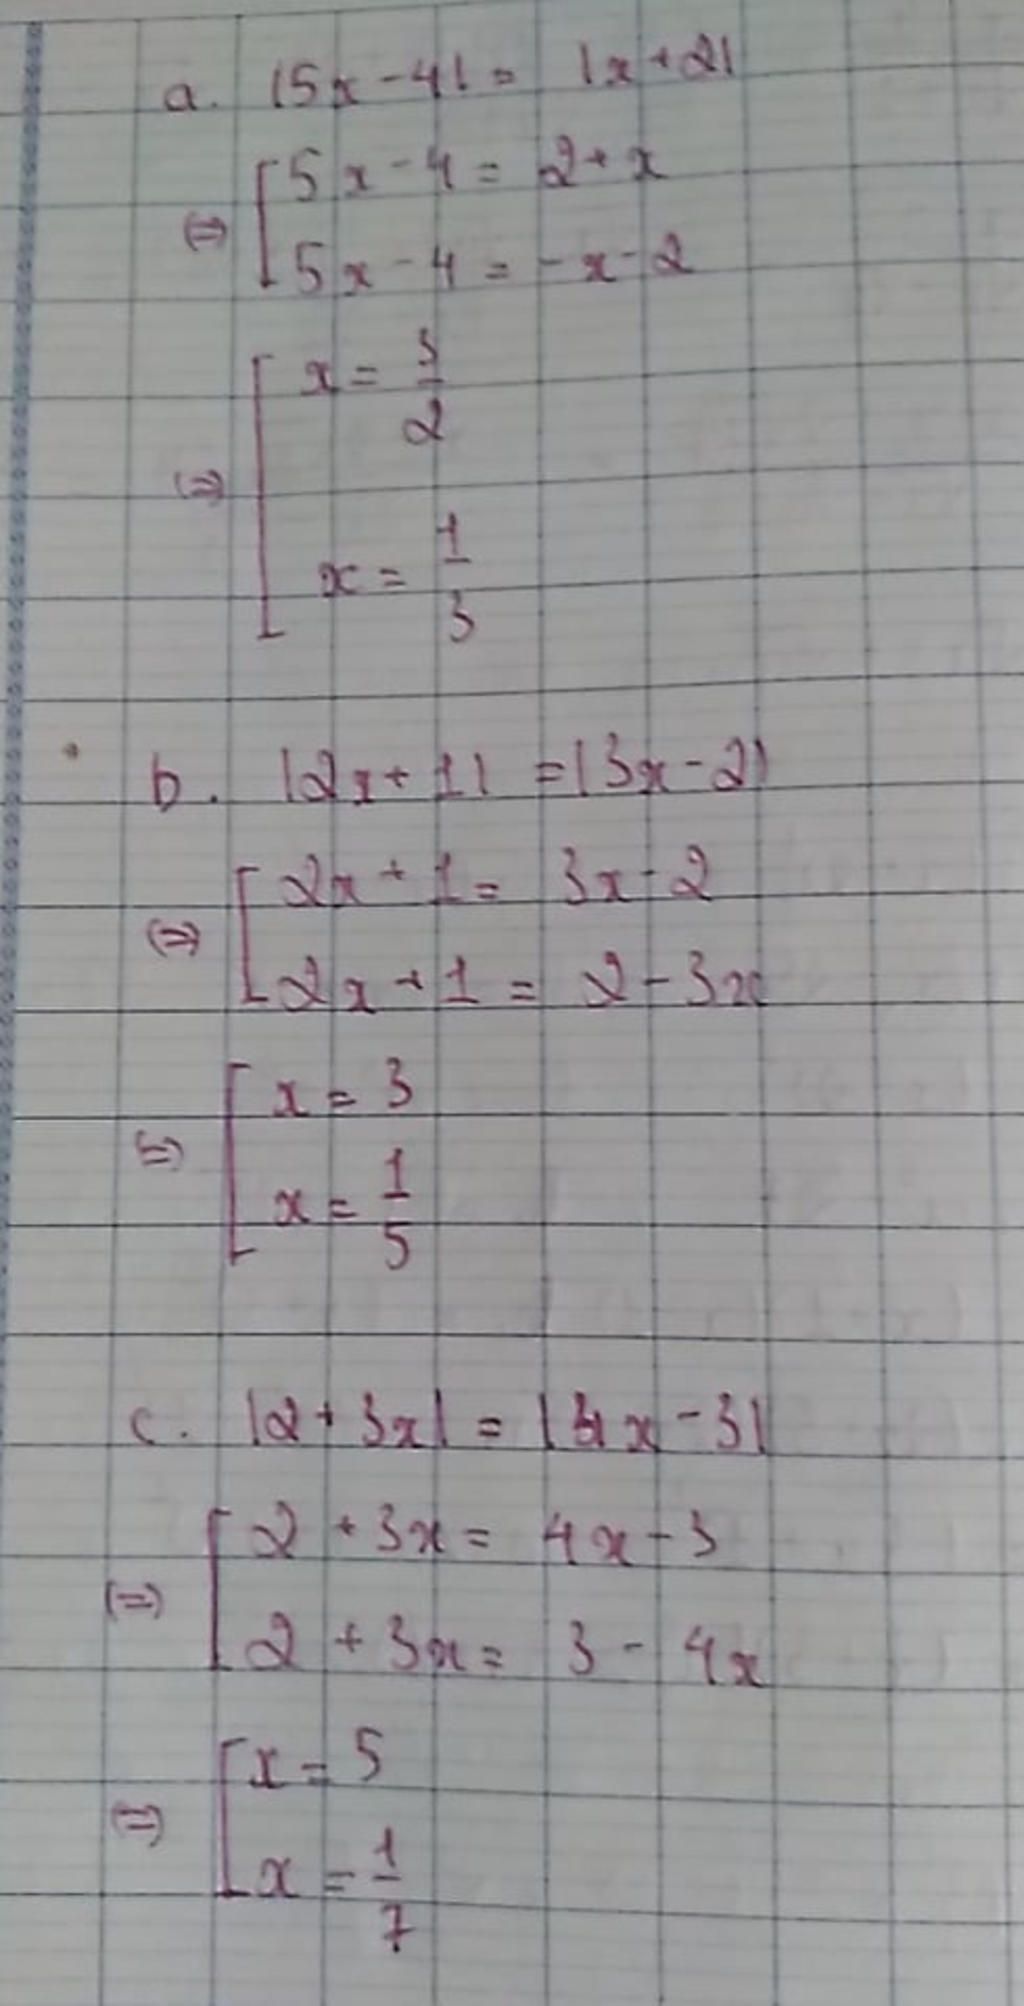 a. |5x - 4| = |x + 2|
⇔ [ 5x - 4 = 2 + x
5x - 4 = -x - 2
⇔ [ x = 3/2
x = 1/3
b. |2x + 1| = |3x - 2|
⇔ [ 2x + 1 = 3x - 2
2x + 1 = 2 - 3x
⇔ [ x = 3
x = 1/5
c. |2 + 3x| = |4x - 3|
⇔ [ 2 + 3x = 4x - 3
2 + 3x = 3 - 4x
⇔ [ x = 5
x = 1/7